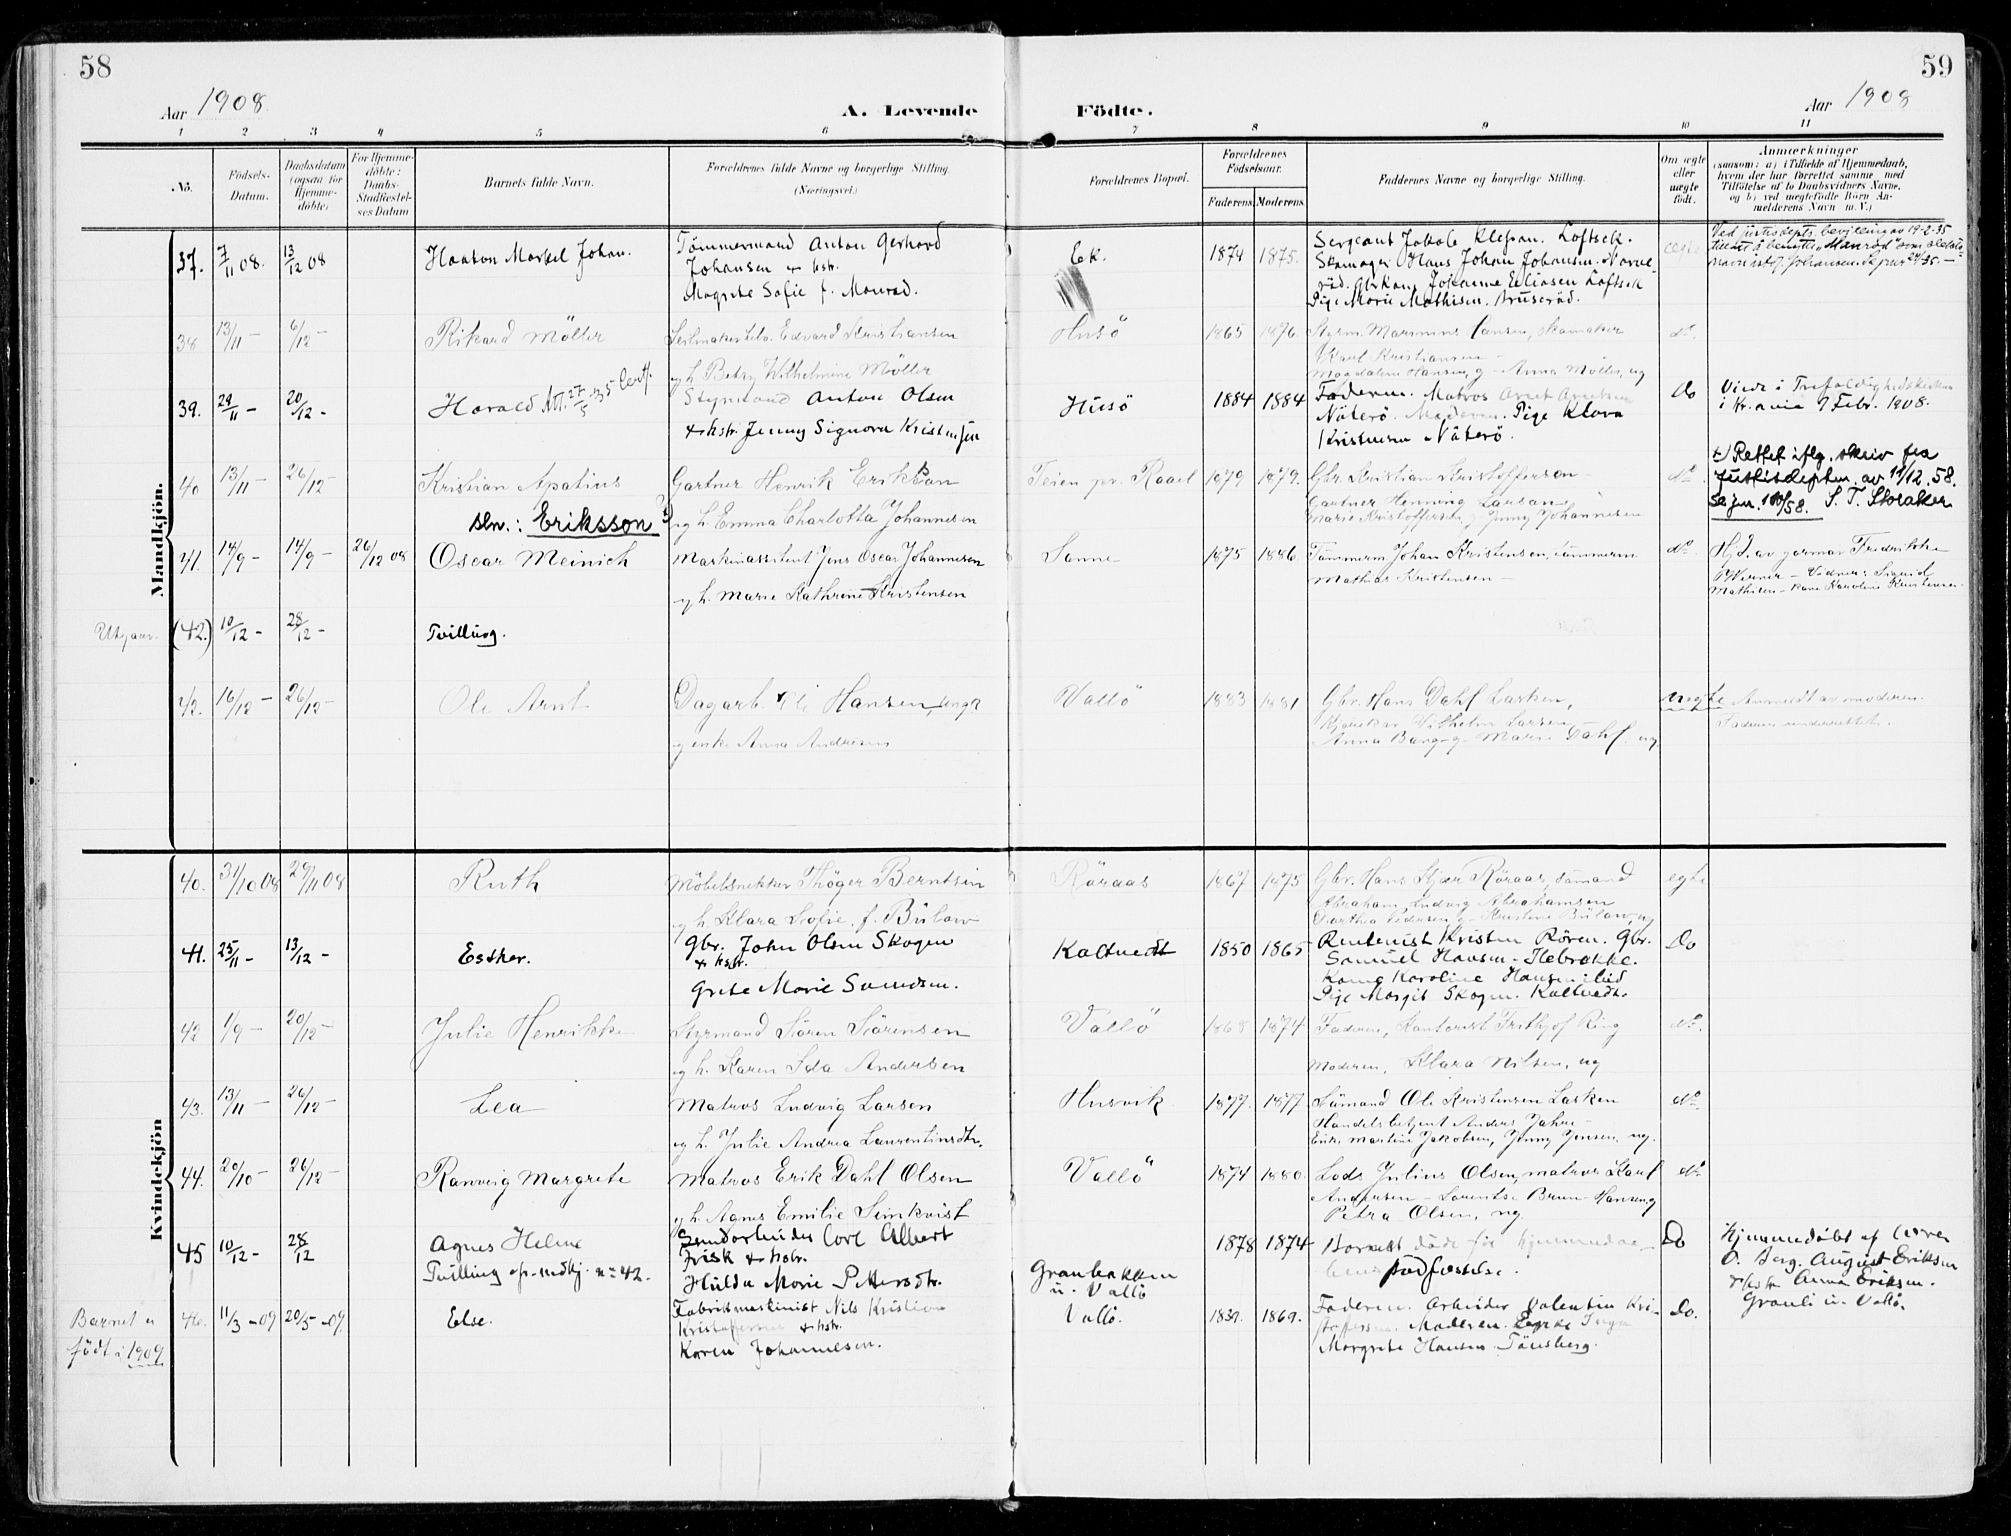 58
59
Aar 1908.
A. Levende
Födte.
Aar 1908
1 2 3 4 5 6 7 8 9 10 11
No.
Födsels-
Datum.
Daabsdatum
(ogsaa for
Hjemme-
döbte)
For Hjemme-
döbte:
Daabs-
Stadfæstel-
ses Datum
Barnets fulde Navn.
Forældrenes fulde Navne og borgerlige Stilling.
(Næringsvei.)
Forældrenes Bopæl.
Forældrenes
Födselsaar.
Faderens Moderens
Faddernes Navne og borgerlige Stilling.
Om ægte
eller
uægte
födt.
Anmærkninger
(saasom: a) i Tilfælde af Hjemmedaab,
hvem der har forrettet samme, med
Tilföielse af to Daabsvidners Navne,
og b) ved uægtefödte Börn An-
melderens Navn m. V.)
Mandkjön.
37. 7/11 08. 13/12 08 Haakon Markel Johan. Tømmermand Anton Gerhard
Johansen & hstr.
Magrete Sofie f. Monrad.
Ek. 1874 1875. Sergeant Jakob Klepan. Loftsek.
Skomager Hans Johan Johansen.
Johanne Eliasen Loftsek
Pige Marie Mathisen. Bruserød.
ægte
Ved justisdepts. bevilling av 19-2-35
38 13/11 - 6/12 - Rikard Möller Edvard Kristiansen
og h. Betzy Wilhelmine Möller
Husö 1865 1876 Styrm. Marinius Hansen, skomaker
Karl Kristiansen -
Magdalene Hansen, g - Anna Möller, ug
do.
39. 29/11 - 20/12 - Harald Att. 27/5 35 Styrmand Anton Olsen
& hstr. Jenny Signora Kristensen
Husö 1884 1884 Faderen. Matros Arnt Arntsen
Nøterø. Moderen. Pige Klara
Kristensen Nøterø.
Do
Viede i Trefoldighedskirken
i Kr.ania 9 Febr. 1908.
40 13/11 - 26/12 - Kristian Apatius
sln.: Eriksson
Gartner Henrik Eriksson
og h. Emma Charlotta Johannesen
Teien pr. Raael 1879 1879. Gbr. Kristian Kristoffersen -
Gartner Henning Larsen
Marie Kristoffersen, Jenny Johannesen
do
Rettet iflg. skriv fra
Justisdeptm. av 11/12.58.
S. T. Storaker
41. 14/9 - 14/9 - 26/12 08 Oscar Meinich Maskinassistent Jens Oscar Johannesen
og h. Marie Kathrine Kristensen
Sanne 1875 1886. Tömmerm Johan Kristensen, tömmerm
Mathias Kristensen -
do
Hjd. av jormor Fredrikke
Werner - Vidner: Sigrid
Mathisen - kone Karoline Kristensen
Utgaar. (42.) 10/12 - 28/12 - Tvilling.
42. 16/12 - 26/12 - Ole Arnt Dagarb. Ole Hansen, ungk
og enke Anna Andresen
Vallö 1883 1881 Gbr. Hans Dahl Larsen,
Vilhelm Larsen,
Anna Bang, g - Marie Dahl, ug.
uegte
Anmeldt av moderen.
Faderen underrettet.
Kvindekjön
40. 31/10 08 29/11 08 Ruth Möbelsnekker Thöger Berntsen
og h. Klara Sofie, f. Bülow
Röraas 1867 1875 Gbr. Hans Kjær Röraas, sömand
Abraham Ludvig Abrahamsen
Dorthea Pedersen g - Kristine Bülow, ug
egte
41. 25/11 - 13/12 - Esther. Gbr. John Olsen Skogen
& hstr.
Grete Marie Svendsen.
Kaltvedt 1850 1865 Rentenist Kristen Røren. Gbr.
Samuel Hansen - Hebrekke.
Kone Karoline Hansen ibid
Pige Margit Skogen. Kaltvedt.
Do
42 1/9 - 20/12 - Julie Henrikke Styrmand Sören Sörensen
og h. Karen Ida Andersen
Vallö 1868 1874. Faderen, Kontorist Frithjof Ring
Moderen, Klara Nilsen, ug
do.
43. 13/11 - 26/12 - Lea Matros Ludvig Larsen
og h. Julie Andrea Laurentinsdtr.
Husvik 1877. 1877. Sömand Ole Kristensen Larsen
Handelsbetjent Anders Jahre -
Enke Martine Jakobsen, Jenny Jensen, ug.
do.
44. 20/10 - 26/12 - Ranveig Margrete Matros Erik Dahl Olsen
og h. Agnes Emilie Semkvist
Vallö 1874 1880. Lods Julius Olsen, matros Karl
Andersen - Lorentse Bruun-Hansen, g
Petra Olsen, ug.
do
45 10/12 - 28/12 Agnes Helene
Tvilling af mdkj. no 42.
Carl Albert
Frisk & hstr.
Hulda Marie Pettersdtr.
Granbakken
u. Vallö
1878 1874 Barnet døde før hjemmedaa-
bens stadfæstelse.
Do
Hjemmedøbt af lærer
O. Berg. August Eriksen
& hstr Anna Eriksen.
Granli u. Vallö.
Barnet er
födt i 1909
46. 11/3 - 09 20/5 - 09. Else. Fabrikmaskinist Nils Kristian
Kristoffersen & hstr.
Karen Johannesen.
Vallö. 1839. 1869. Faderen. Arbeider Valentin Kri-
stoffersen. Moderen. Enke Inga
Margrete Hansen Tönsberg.
Do.